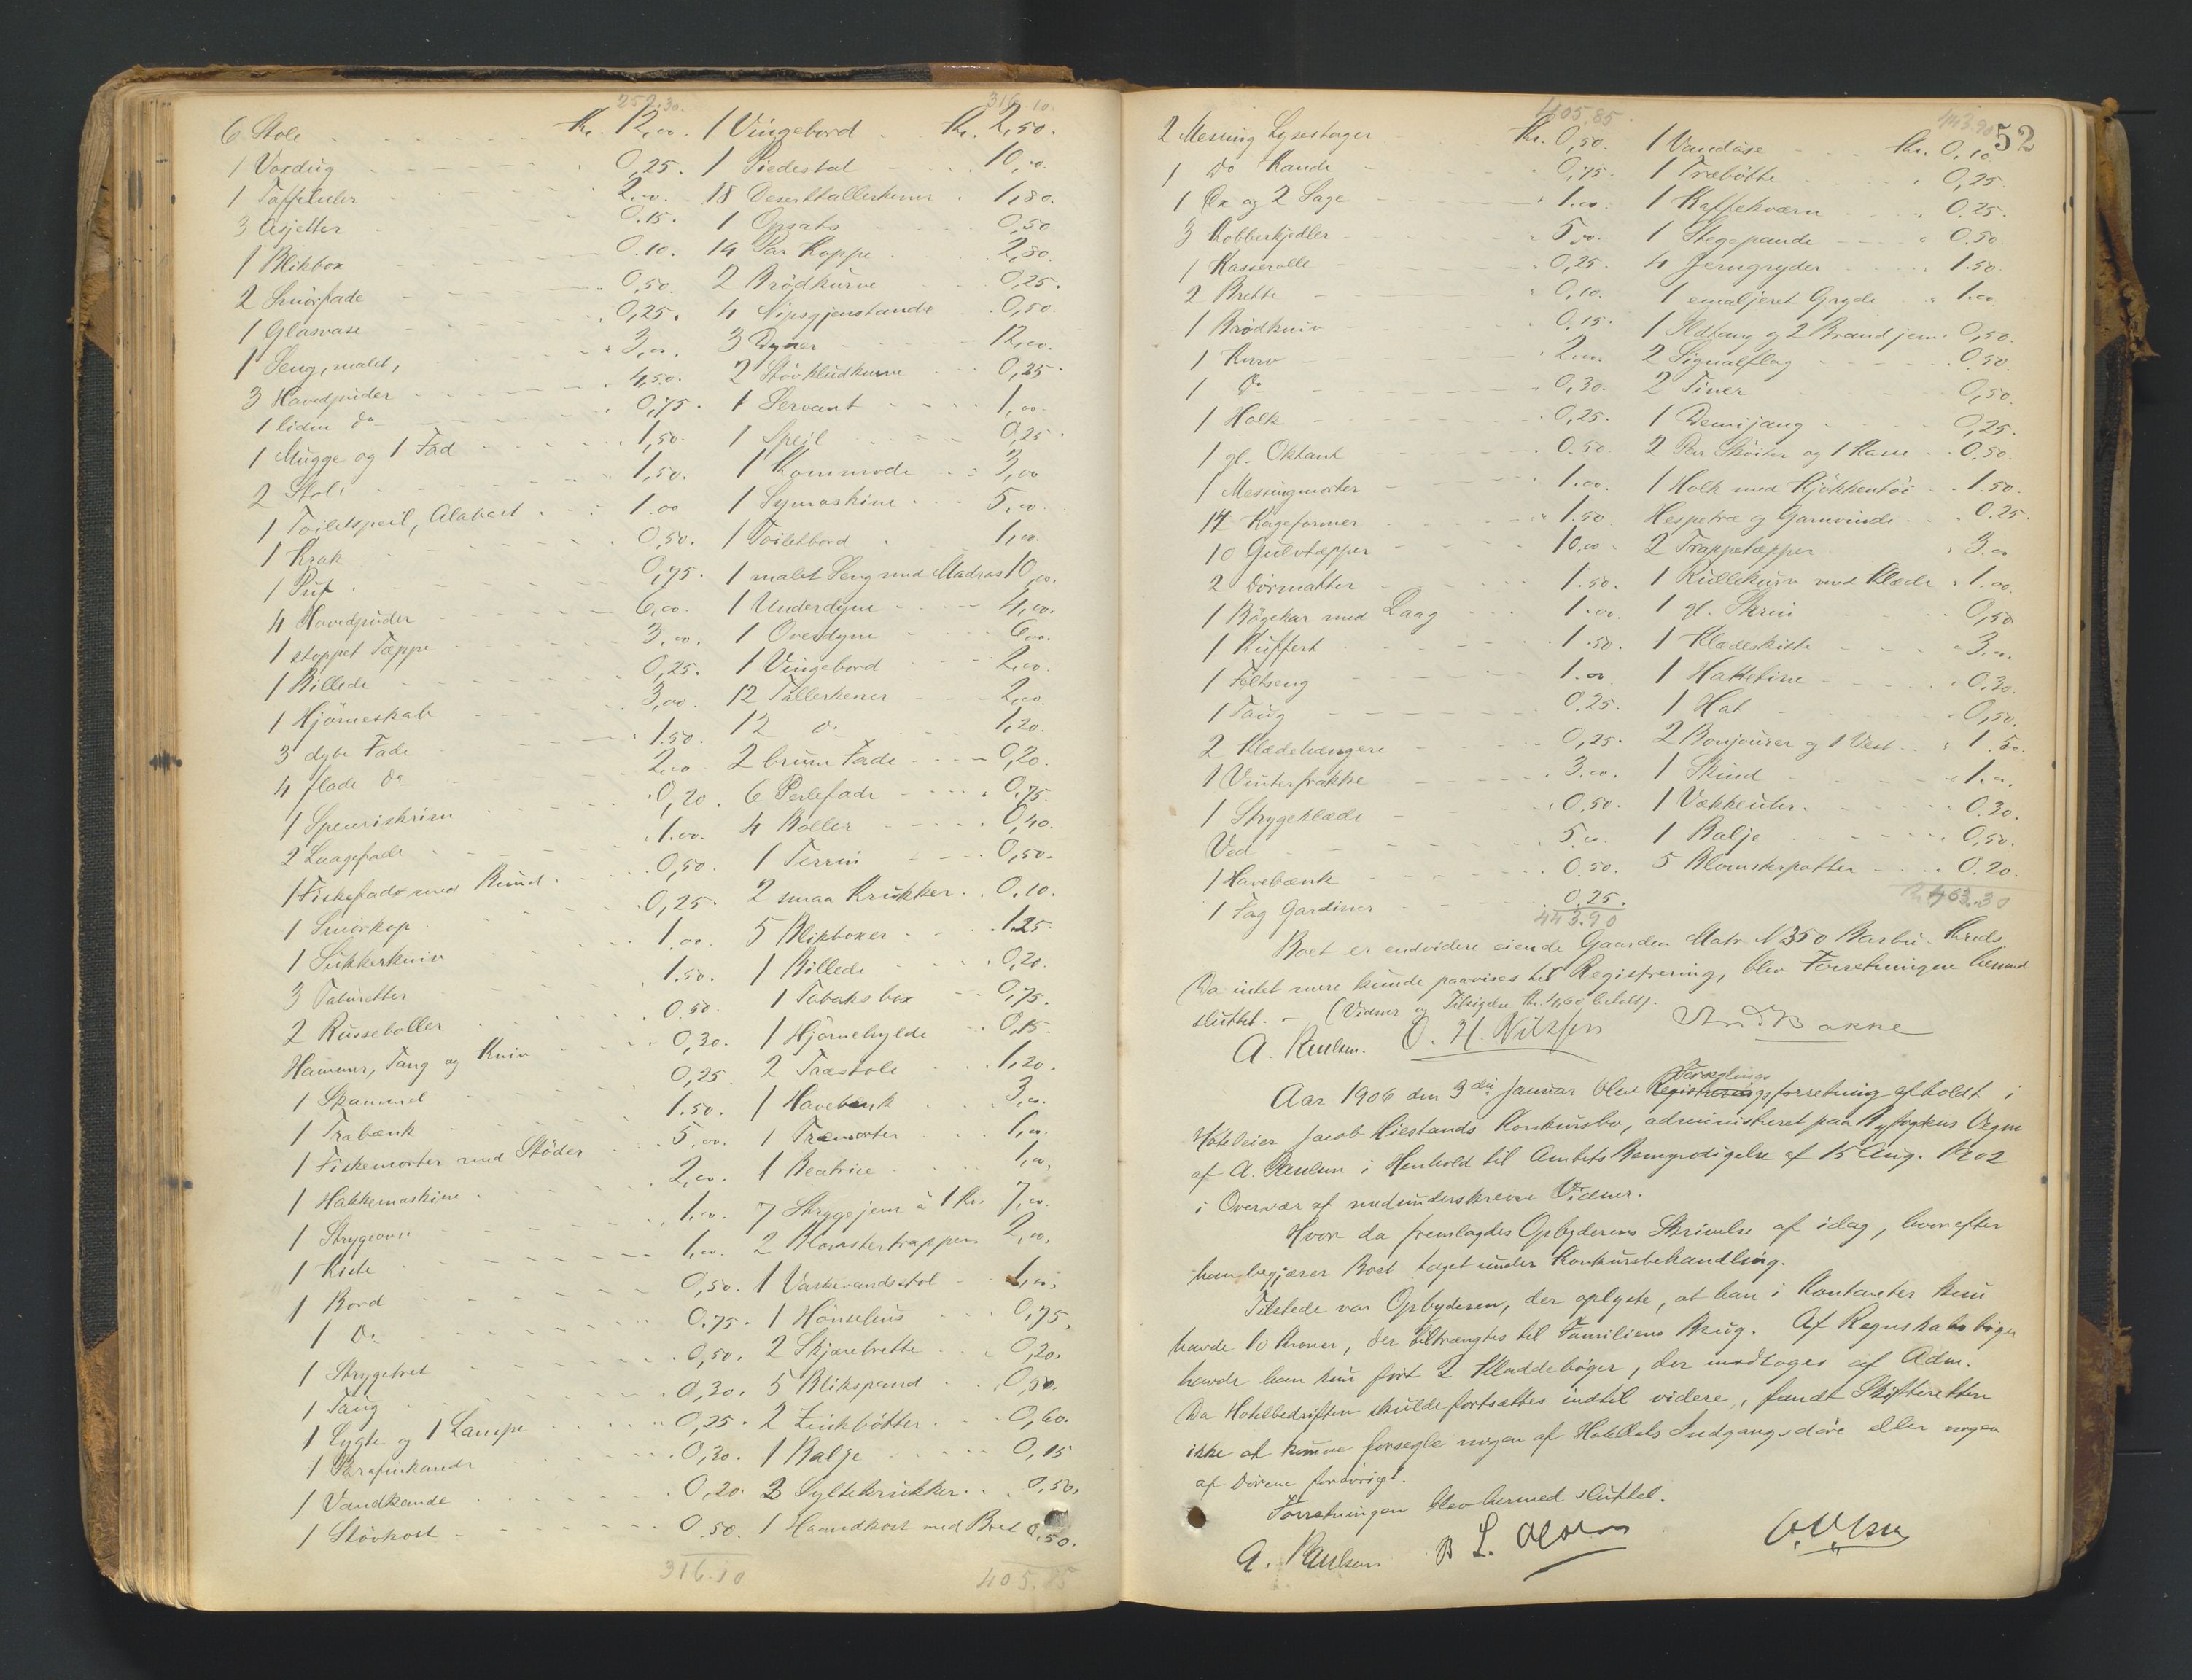 252.30.
6 Stole kr. 12,00.
1 Voxdug 0,25.
1 Taffeluhr 2,00.
3 Asjetter 0.15.
1 Blikbox 0.10.
2 Smörfade 0,50.
1 Glasvase 0,25.
1 Seng, malet, 3,00.
3 Hovedpuder 4,50.
1 liden do 0,75.
1 Mugge og 1 Fad 1,50.
2 Stole 1,50.
1 Toiletspeil, Alabast 1.00
1 Krak 0,50.
1 Puf 0,75.
4 Hovedpuder 6,00.
1 stoppet Tæppe 3,00.
1 Billede 0,25.
1 Hjörneskab 3,00.
3 dybe Fade 1.50.
4 flade do 2,00
1 Spenriskrin 0,20.
2 Laagefade 1.00.
1 Fiskefad med Rund 0,50.
1 Smörkop 0,25.
1 Sukkerkniv 1,00.
3 Taburetter 1.50.
2 Russeboller 0.50.
Hammer, Tang og Kniv 0,30.
1 Skammel 0,25.
1 Træbænk 1.50.
1 Fiskemorter med Stöder 5,00.
1 Hakkemaskine 2,00.
1 Strygeovn 1,00.
1 Kiste 1,00.
1 Bord 0,50.
1 Do 0.75.
1 Strygebret 0,50.
1 Taug 0,30.
1 Lygte og 1 Lampe 0,25.
1 Parafinkande 0,30.
1 Vandkande 0,20.
1 Stövkost 0.50.
316.10
316.10.
1 Vingebord kr. 2,50.
1 Piedestal 10,00.
18 Deserttallerkener 1,80.
1 Opsats 0,50
14 Par Koppe 2,80.
2 Brödkurve 0,25.
4 Nipsgjenstande 0,50.
3 Dyner 12,00.
2 Stövkludkurve 0,25.
1 Servant 1,00.
1 Speil 0,25.
1 Kommode 3,00
1 Symaskine 5,00.
1 Toiletbord 1,00.
1 malet Seng med Madras 10,00.
1 Underdyne 4,00.
1 Overdyne 6,00.
1 Vingebord 2,00.
12 Tallerkener 2,00.
12 do 1,20.
2 brune Fade 0,20.
6 Perlefade 0,75.
4 Boller 0,40.
1 Terrin 0,50.
2 smaa Krukker 0.10.
5 Blikboxer 1.25.
1 Billede 0,20.
1 Tobaksbox 0,75.
1 Hjörnehylde 0,15.
2 Træstole 1,20.
1 Havebænk 3,00.
1 Træmorter 1,00.
1 Beatrice 1,00.
7 Strygejern à 1 Kr. 7,00.
2 Blomstertrapper 2,00.
1 Vaskevandstol 1,00.
1 Hönsehus 0,75.
2 Skjærebrette 0,20.
5 Blikspand 0,50.
2 Zinkbötter 0,60.
1 Balje 0,15
3 Syltekrukker 0,50.
1 Haandkost med Bret 0,50.
405.85
405.85.
2 Messing Lysestager kr. 0,50.
1 Do Kande 0,75.
1 Öx og 2 Sage 1.00.
3 Kobberkjedler 5,00.
1 Kasserolle 0,25.
2 Brette 0,10.
1 Brödkniv 0,15.
1 Kurv 2,00.
1 Do 0,30.
1 Holk 0,25.
1 gl. Oktant 0.50.
1 Messingmorter 1.00.
14 Kageformer 1.50
10 Gulvtæpper 10,00.
2 Dörmatter 1.50.
1 Bögekar med Laag 1.00.
1 Kuffert 1.50.
1 Feltseng 1.00
1 Taug 0.25.
2 Klædehængere 0,25.
1 Vinterfrakke 3.00.
1 Strygeklæde 0.50.
Ved 5,00.
1 Havebænk 0.50.
1 Fag Gardiner 0.25.
443.90
443.90
52
1 Vandöse kr. 0,10
1 Træbötte 0,25.
1 Kaffekværn 0.25.
1 Stegepande 0.50.
4 Jerngryder 1.50.
1 emaljeret Gryde 1.00.
1 Ildtang og 2 Brandjern 0,50.
2 Signalflag 0.50.
2 Tiner 0,50.
1 Demijang 0,25.
2 Par Sköiter og 1 Kasse 0.50.
1 Holk med Kjökkentöi 1.50.
Hespetræ og Garnvinde 0.25.
2 Trappetæpper 3.00
1 Rullekurv med Klæde 1.00.
1 gl. Skrin 0,50
1 Klædeskiste 3.00.
1 Hattetine 0.30.
1 Hat 0,50.
2 Bonjourer og 1 Vest 1.50.
1 Skind 1.00.
1 Vækkeuhr 0.30.
1 Balje 0,50.
5 Blomsterpotter 0.20.
463.30
Boet er endvidere eiende Gaarden Matr. No 350 Barbu Kreds.
Da intet mere kunde paavises til Registrering, blev Forretningen hermed
sluttet. - (Vidner og Tilsigelse kr. 4,60 betalt).
A. Paulsen. O. H. Nilssen And Bakke
Aar 1906 den 9de Januar blev Registrerings Forseglingsforretning afholdt i
Hoteleier Jacob Kiestands Konkursbo, administreret paa Byfogdens Vegne
af A. Paulsen i Henhold til Amtets Bemyndigelse af 15 Aug. 1902
i Overvær af medunderskrevne Vidner.
Hvor da fremlagdes Opbyderens Skrivelse af idag, hvorefter
han begjærer Boet taget under Konkursbehandling.
Tilstede var Opbyderen, der oplyste, at han i Kontanter kun
havde 10 Kroner, der tiltrængtes til Familiens Brug. Af Regnskabsböger
havde han kun fört 2 Kladdeböger, der modtoges af Adm.
Da Hotelbedriften skulde fortsættes indtil videre, fandt Skifteretten
ikke at kunne forsegle nogen af Hotellets Indgangsdöre eller nogen
af Dörene forövrigt.
Forretningen blev hermed sluttet.
A. Paulsen. B L. Olsen